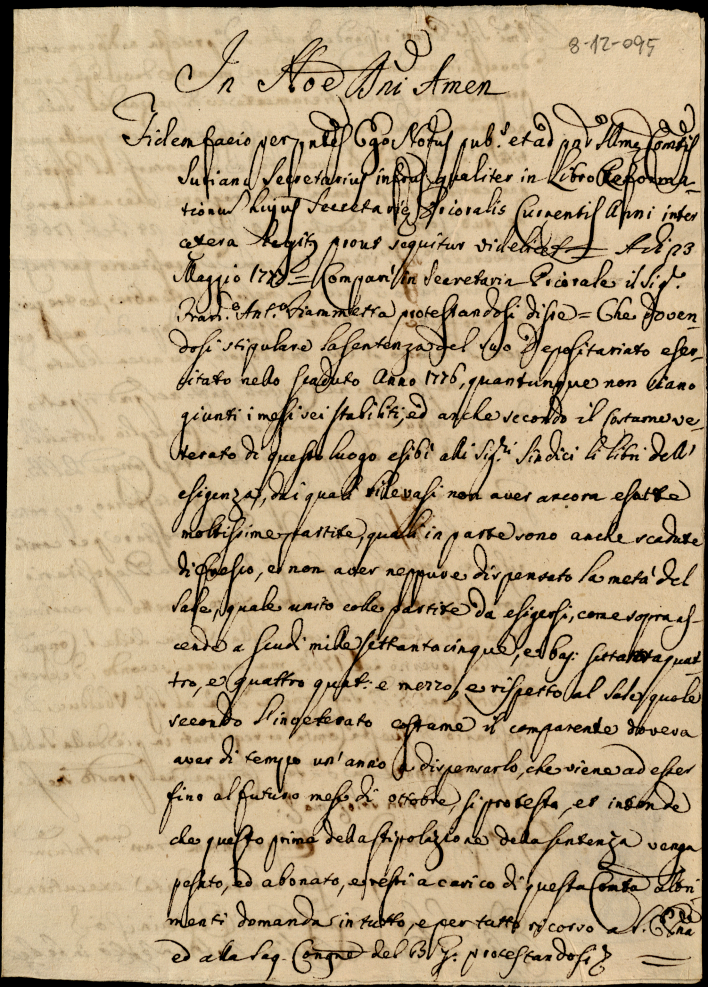 8-12-095
In Nõe Dñi Amen
Fidem facio per pñtes Ego Notus pub.s et ad pñs Illmę Comtis
Suriani Secretarius infrascr qualiter in Libro Reforma-
tionus hujus Secretarię Prioralis Currentis Anni inter
cętera legitr prout sequitur videlicet = Adi 23
Maggio 1777 = Comparì in Secretaria Priorale il Sig.r
Fran.co Ant.o Fiammetta, protestandosi disse = Che doven-
dosi stipulare la sentenza del suo Depositariato eser-
citato nello scaduto Anno 1776, quantunque non siano
giunti i mesi sei stabiliti, ed anche secondo il costume ve-
terato di questo luogo esibì alli Sig.ri Sindici li libri dell'
esigenza, dai quali rilevasi non aver ancora esatte
moltissime partite, quali in parte sono anche scadute
di fresco, e non aver neppure dispensato la metà del
Sale, quale unito colle partite da esigersi, come sopra as-
cende a scudi mille settantacinque, e baj: settantaquat-
tro, e quattro quat: e mezzo, e rispetto al Sale, quale
secondo l'inveterato costume il comparente doveva
aver di tempo un'anno a dispensarlo, che viene ad esser
fino al futuro mese di ottobre si protesta, et intende
che questo prima della stipolazione della sentenza venga
pesato, ed abonato, e resti a carico di questa Comtà altri-
menti domanda in tutto, e per tutto ricorso a S. Emã
ed alla Sag. Congne del B. G: protestandosi =